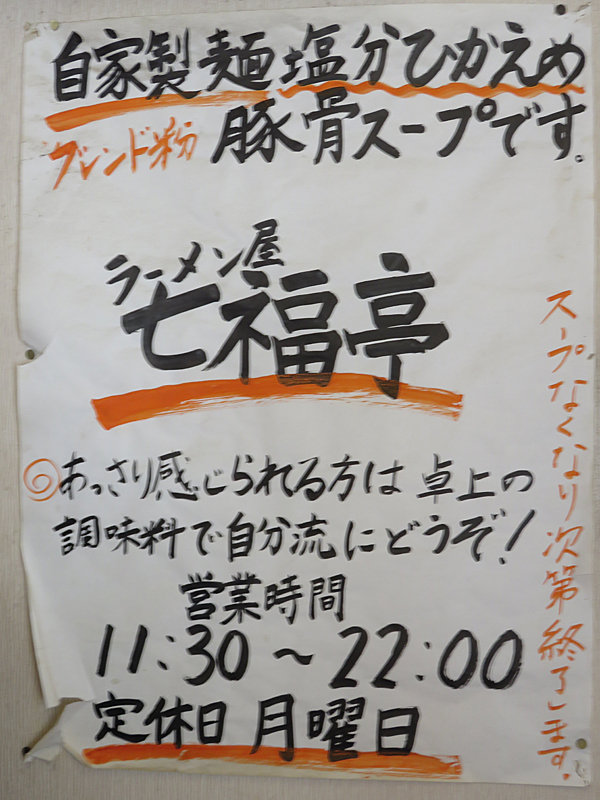 自家製麺塩分ひかえめ
ブレンド粉 豚骨スープです。
ラーメン屋
七福亭
◎あっさり感じられる方は卓上の
調味料で自分流にどうぞ!
営業時間
11:30～22:00
定休日 月曜日
スープなくなり次第終了します。